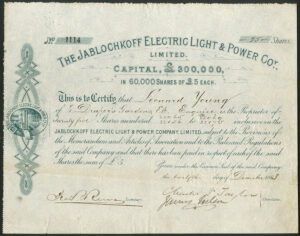 No. 1114
25 Shares
THE JABLOCHKOFF ELECTRIC LIGHT & POWER COY.
LIMITED.
CAPITAL, £300,000,
IN 60,000 SHARES OF £5 EACH.
This is to Certify that Leonard Young
of Engineer is the Proprietor of
Twenty five Shares numbered inclusive in the
JABLOCHKOFF ELECTRIC LIGHT & POWER COMPANY, LIMITED, subject to the Provisions of
the Memorandum and Articles of Association and to the Rules and Regulations
of the said Company and that there has been paid in respect of each of the said
Shares the sum of £5
Given under the Common Seal of the said Company
the day of December